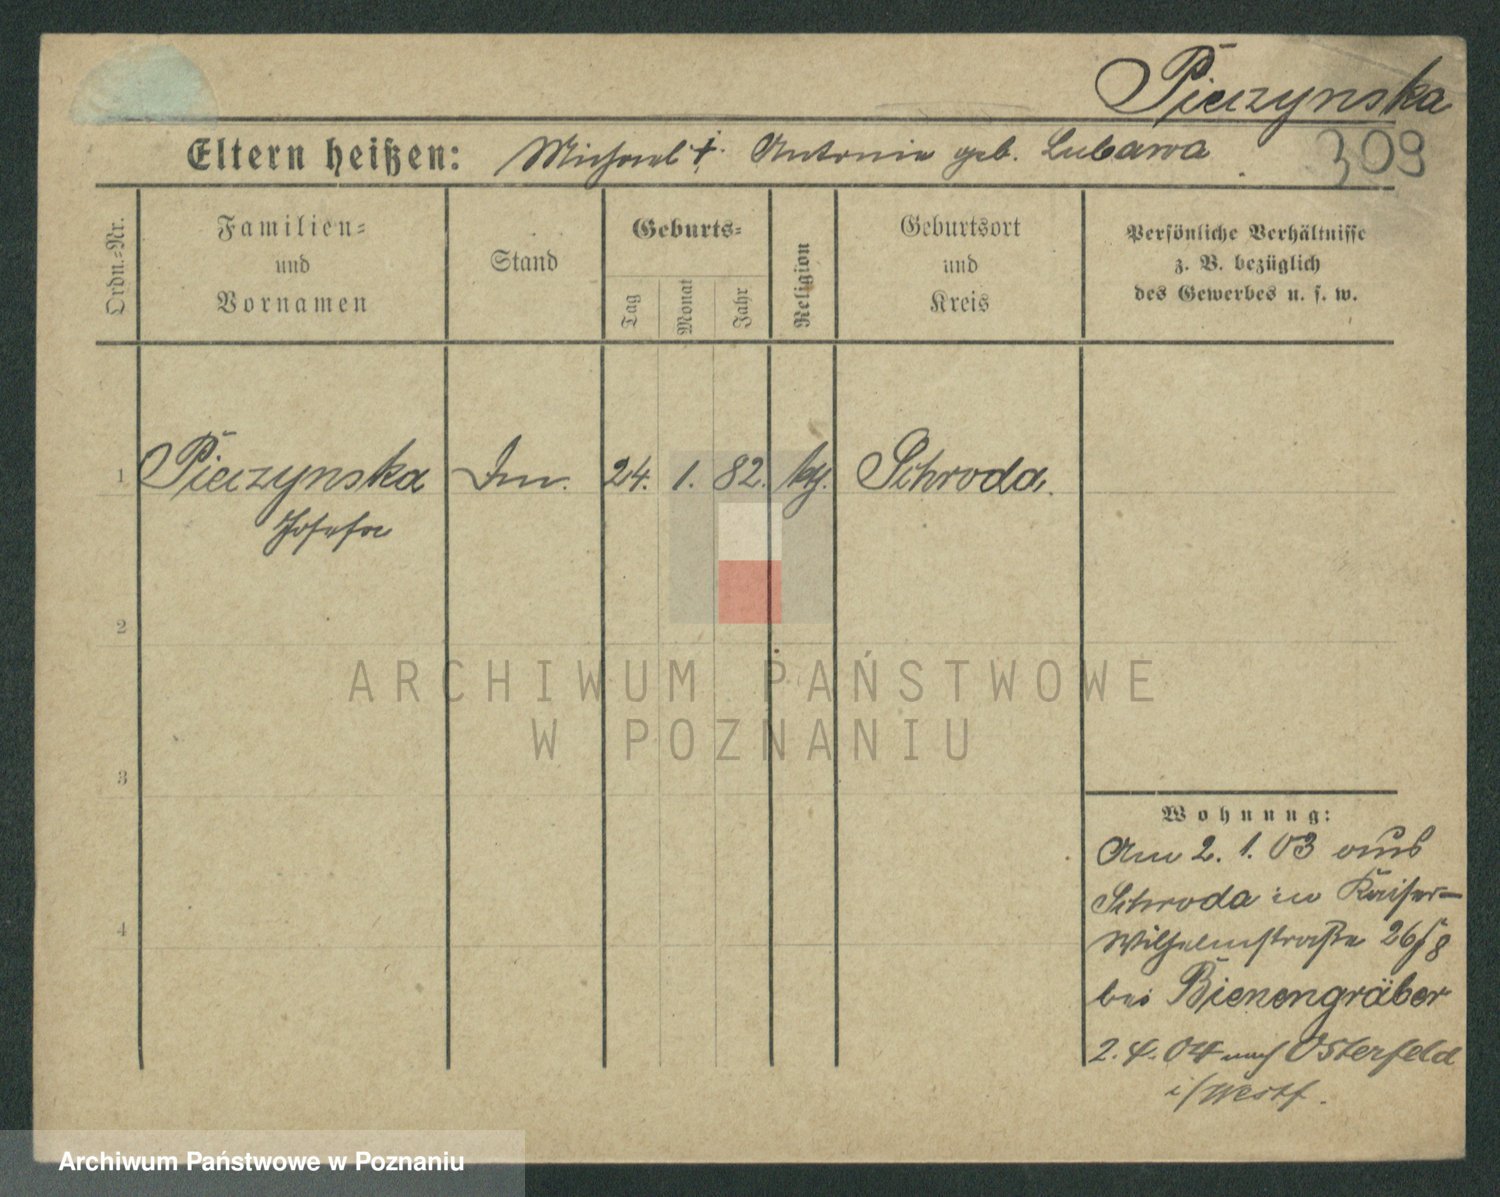 Pieczynska
309
Eltern heißen: Michael †. Antonie geb. Lubawa
Ordn.-Nr.
Familien-
und
Vornamen
Stand
Geburts-
Tag
Monat
Jahr
Religion
Geburtsort
und
Kreis
Persönliche Verhältnisse
z. B. bezüglich
des Gewerbes u. s. w.
1 Pieczynska 24. 1. 82. Schroda.
Josefa
2
ARCHIWUM PAŃSTWOWE
W POZNANIU
3
4
Wohnung:
Am 2. 1. 03 aus
Schroda in Kaiser-
Wilhelmstraße 26
bei Bienengräber
2. 4. 04 nach Osterfeld
i/Westf.
Archiwum Państwowe w Poznaniu